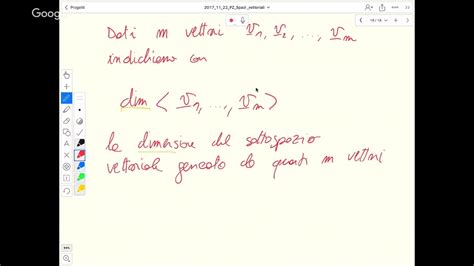 Google
Progetti
2017_11_23_PZ_Spazi_vettoriali
Dati m vettori v₁, v₂, ..., vₘ
indichiamo con
dim < v₁, ..., vₘ >
la dimensione del sottospazio
vettoriale generato da questi m vettori